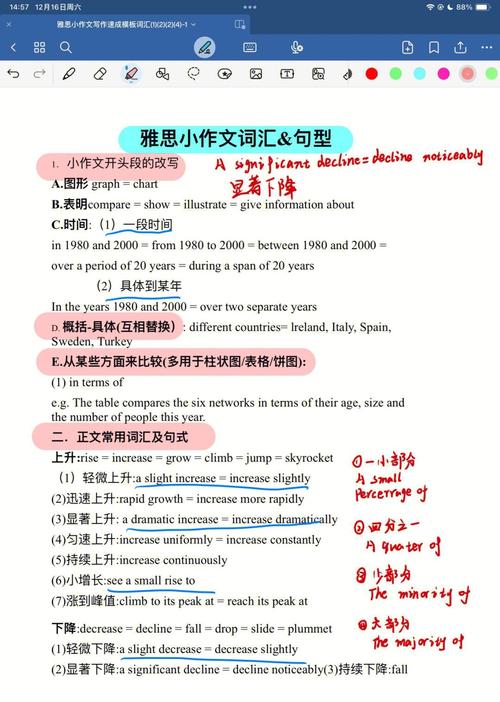 14:57 12月16日周六
88%
雅思小作文写作速成模板词汇(1)(2)(2)(4)-1
雅思小作文词汇&句型
1. 小作文开头段的改写
A significant decline = decline noticeably
显著下降
A.图形 graph = chart
B.表明compare = show = illustrate = give information about
C.时间:（1）一段时间
in 1980 and 2000 = from 1980 to 2000 = between 1980 and 2000 =
over a period of 20 years = during a span of 20 years
（2）具体到某年
In the years 1980 and 2000 = over two separate years
D. 概括-具体(互相替换）: different countries= lreland, Italy, Spain,
Sweden, Turkey
E.从某些方面来比较(多用于柱状图/表格/饼图):
(1) in terms of
e.g. The table compares the six networks in terms of their age, size and
the number of people this year.
二．正文常用词汇及句式
上升:rise = increase = grow = climb = jump = skyrocket
（1）轻微上升:a slight increase = increase slightly
(2)迅速上升:rapid growth = increase more rapidly
(3)显著上升: a dramatic increase = increase dramatically
(4)匀速上升:increase uniformly = increase constantly
(5)持续上升:increase continuously
(6)小增长:see a small rise to
(7)涨到峰值:climb to its peak at = reach its peak at
①一小部分
A small
Percerrage of
②四分之一
A quater of
③少部分
The minority of
④大部分
The majority of
下降:decrease = decline = fall = drop = slide = plummet
(1)轻微下降:a slight decrease = decrease slightly
(2)显著下降:a significant decline = decline noticeably(3)持续下降:fall